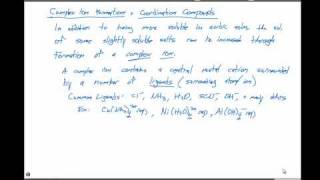 Complex Ion Formation + Coordination Compounds
In addition to being more soluble in acidic sol'n the sol.
of some slightly soluble salts can be increased through
formation of a complex ion.
A complex ion contains a central metal cation surrounded
by a number of ligands (surrounding atom/ion)
Common Ligands: Cl⁻, NH₃, H₂O, SCN⁻, OH⁻ + many others